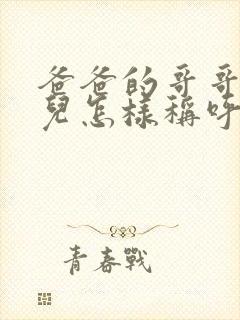 爸爸的哥哥
兒怎樣稱呼
青春戰